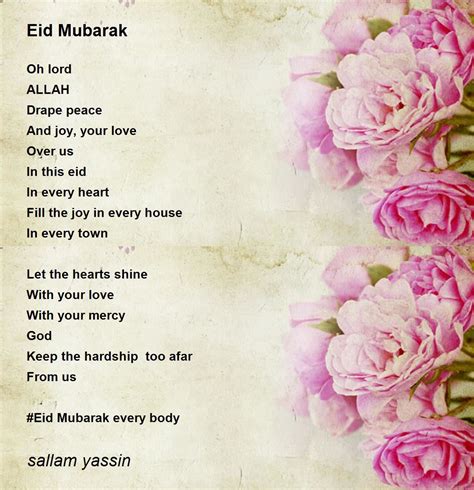 Eid Mubarak
Oh lord
ALLAH
Drape peace
And joy, your love
Over us
In this eid
In every heart
Fill the joy in every house
In every town
Let the hearts shine
With your love
With your mercy
God
Keep the hardship  too afar
From us
#Eid Mubarak every body
sallam yassin